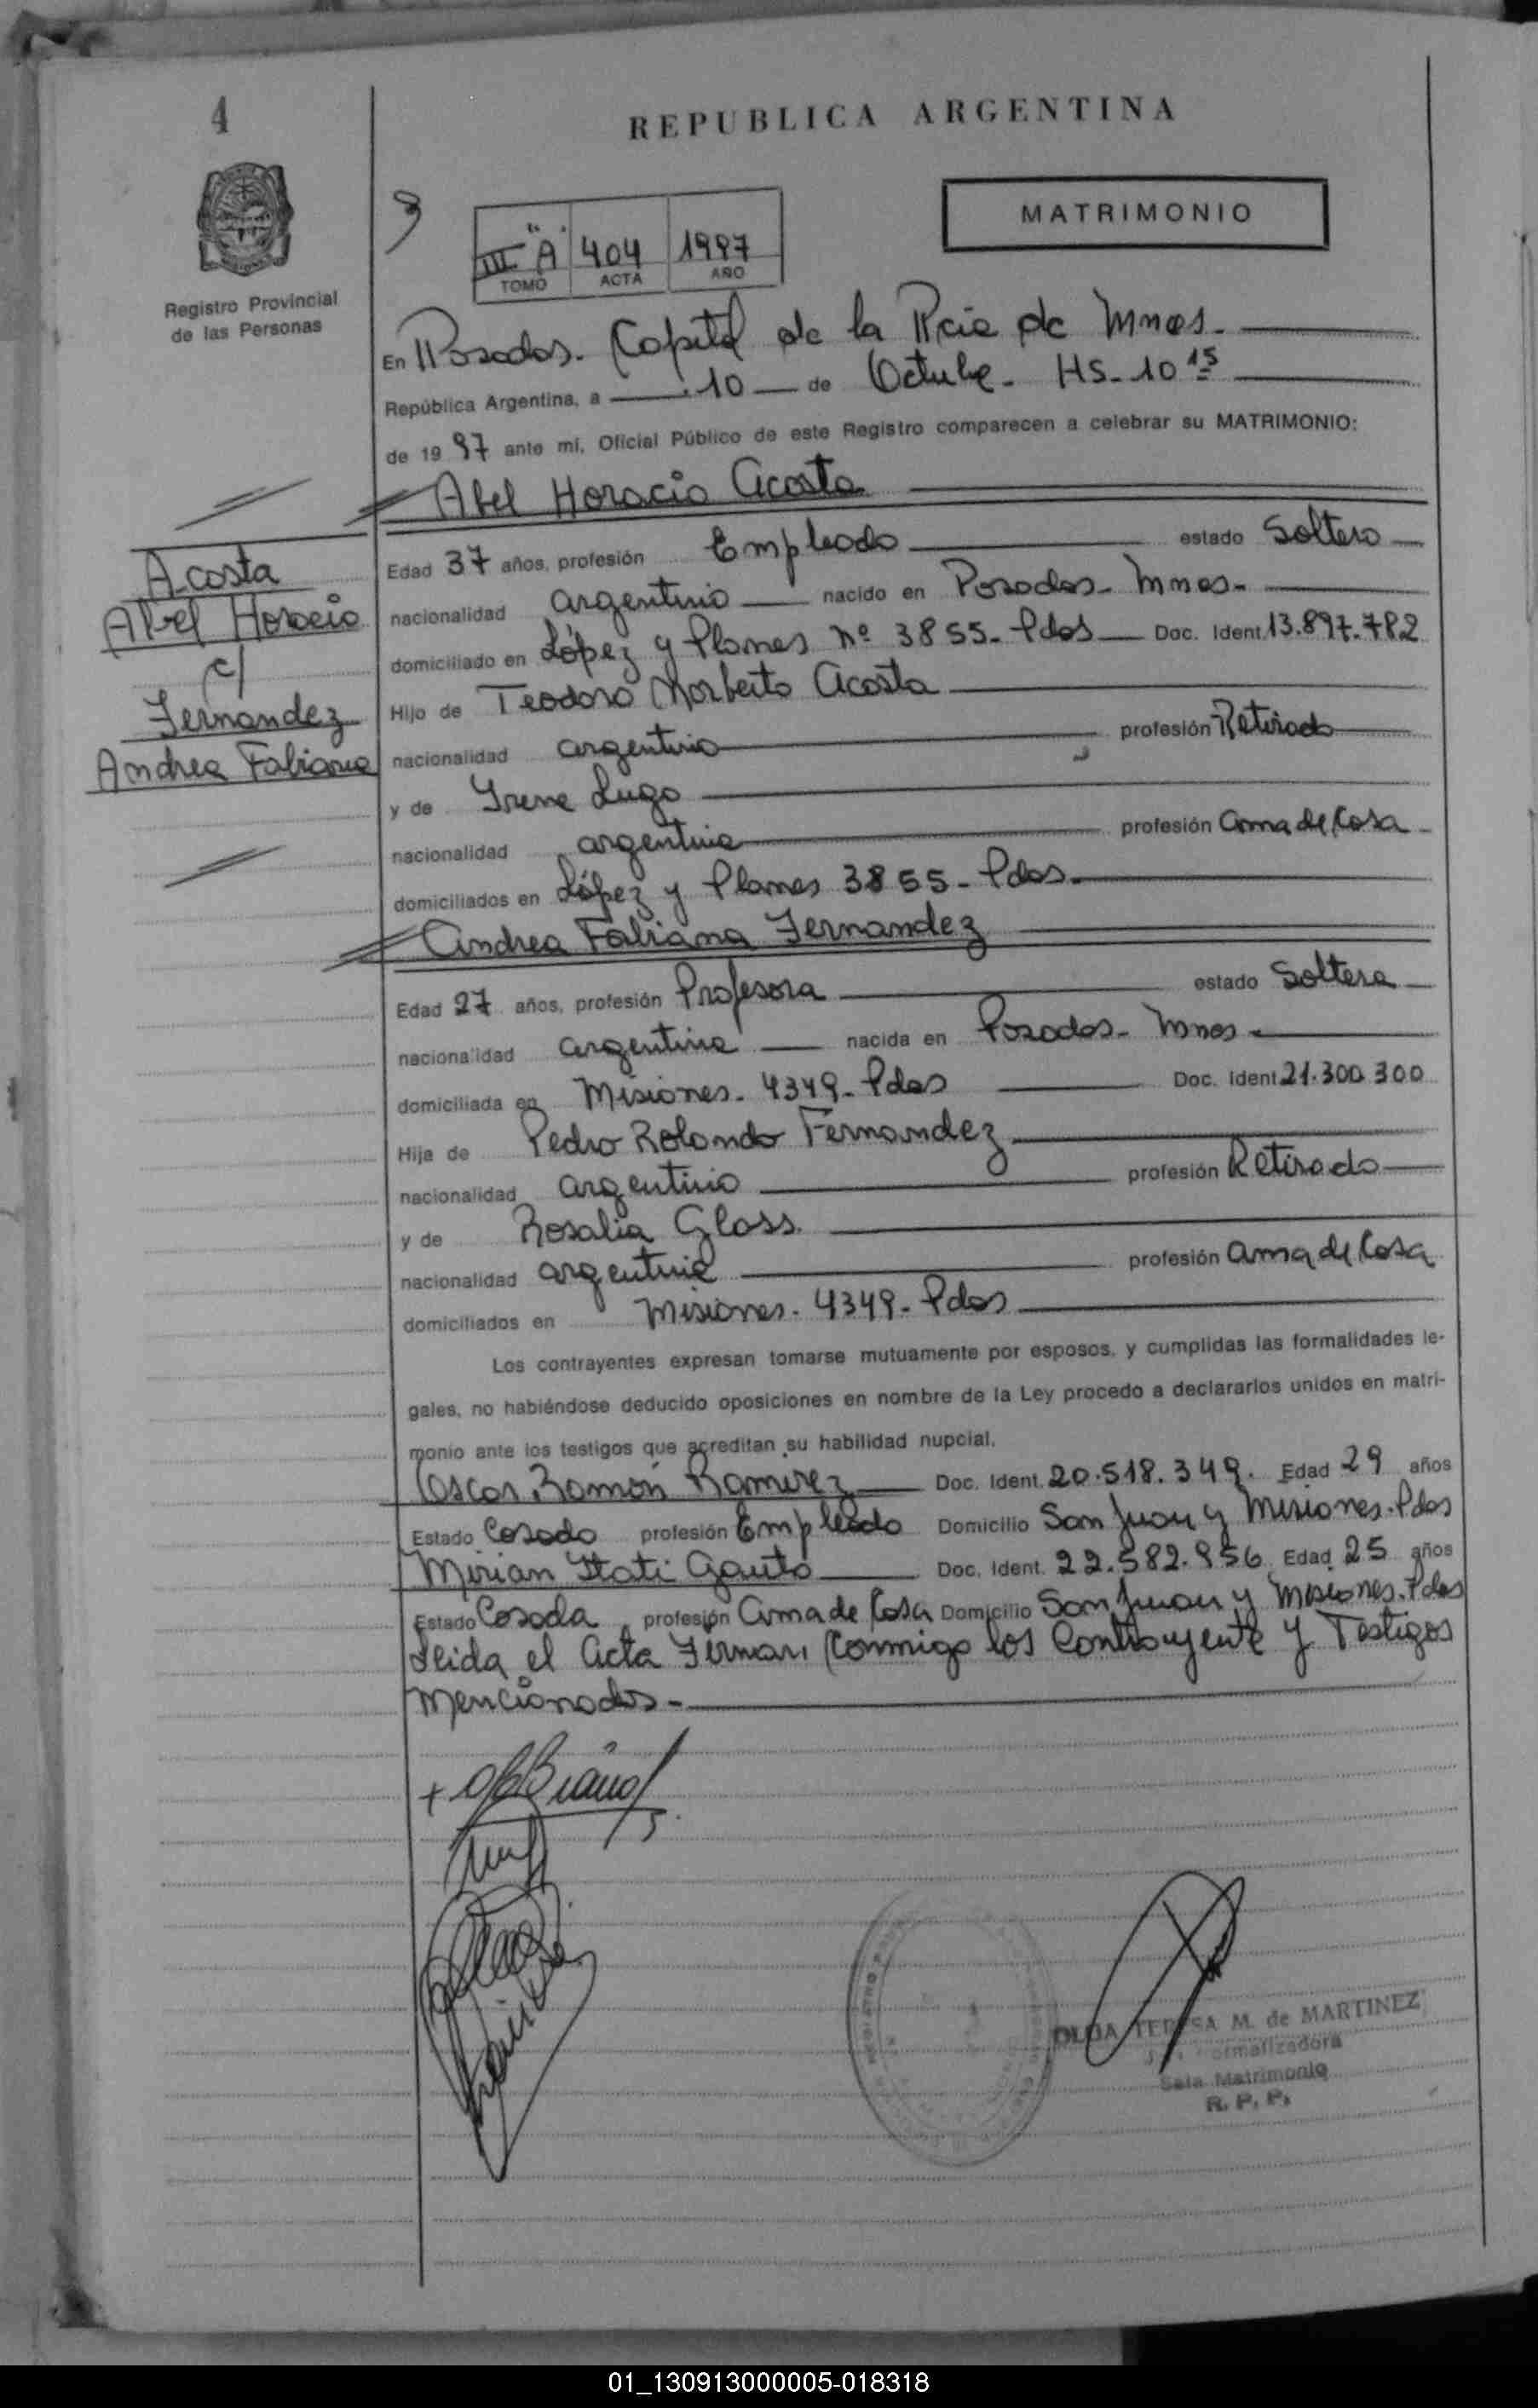 4
REPUBLICA ARGENTINA
Registro Provincial
de las Personas
3
MATRIMONIO
III "A" 404 1997
TOMO ACTA AÑO
En Posadas. Capital de la Pcia de Mnes.
República Argentina, a 10 de Octubre. HS. 10 15
de 1997 ante mí, Oficial Público de este Registro comparecen a celebrar su MATRIMONIO:
Abel Horacio Acosta
Acosta
Abel Horacio
c/
Fernandez
Andrea Fabiana
Edad 37 años, profesión Empleado estado Soltero
nacionalidad argentino nacido en Posadas. Mnes.
domiciliado en López y Planes Nº 3855. Pdas Doc. Ident. 13.897.782
Hijo de Teodoro Norberto Acosta
nacionalidad argentino profesión Retirado
y de Irene Lugo
nacionalidad argentina profesión ama de Casa
domiciliados en López y Planes 3855. Pdas.
Andrea Fabiana Fernandez
Edad 27 años, profesión Profesora estado Soltera
nacionalidad argentina nacida en Posadas. Mnes.
domiciliada en Misiones. 4349. Pdas Doc. Ident 21.300.300
Hija de Pedro Rolando Fernandez
nacionalidad argentino profesión Retirado
y de Rosalia Glass.
nacionalidad argentina profesión ama de Casa
domiciliados en Misiones. 4349. Pdas
Los contrayentes expresan tomarse mutuamente por esposos, y cumplidas las formalidades le-
gales, no habiéndose deducido oposiciones en nombre de la Ley procedo a declararlos unidos en matri-
monio ante los testigos que acreditan su habilidad nupcial.
Oscar Ramón Ramirez Doc. Ident. 20.518.349. Edad 29 años
Estado Casado profesión Empleado Domicilio San Juan y Misiones. Pdas
Mirian Itati Gauto Doc. Ident. 22.582.956 Edad 25 años
Estado Casada profesión Ama de Casa Domicilio San Juan y Misiones. Pdas
Leida el Acta Firman Conmigo los Contrayente y Testigos
Mencionados.
OLGA TERESA M. de MARTINEZ
Sala Matrimonio
R. P. P.
01_130913000005-018318